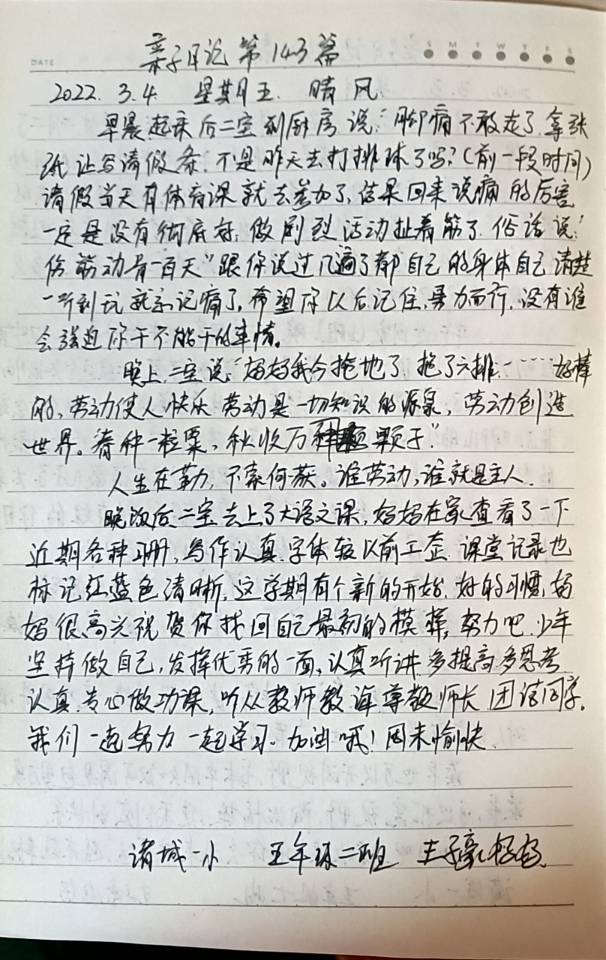 亲子日记 第143篇
DATE S M T W T F S
2022. 3.4. 星期五. 晴 风
早晨起来后二宝到厨房说:“脚痛不敢走了,拿张
纸让写请假条.不是昨天去打排球了吗?(前一段时间)
请假当天有体育课就去参加了,结果回来说痛的厉害
一定是没有彻底好,做剧烈活动扯着筋了.俗话说:“
伤筋动骨一百天”跟你说过几遍了都自己的身体自己清楚
一听到玩就忘记痛了,希望你以后记住,量力而行,没有谁
会强迫你干不能干的事情。
晚上,二宝说:“妈妈我今拖地了,拖了六排……好棒
的,劳动使人快乐.劳动是一切知识的源泉,劳动创造
世界。春种一粒粟,秋收万颗子”
人生在勤,不索何获。谁劳动,谁就是主人.
晚饭后二宝去上了大语文课,妈妈在家查看了一下
近期各种习册,写作认真,字体较以前工整.课堂记录也
标记红蓝色清晰,这学期有个新的开始,好的习惯,妈
妈很高兴祝贺你找回自己最初的模样,努力吧,少年
坚持做自己,发挥优秀的一面,认真听讲,多提高,多思考
认真、专心做功课,听从教师教诲,尊敬师长,团结同学,
我们一起努力一起学习.加油哦!周末愉快.
诸城一小 五年级二班 王子豪妈妈.